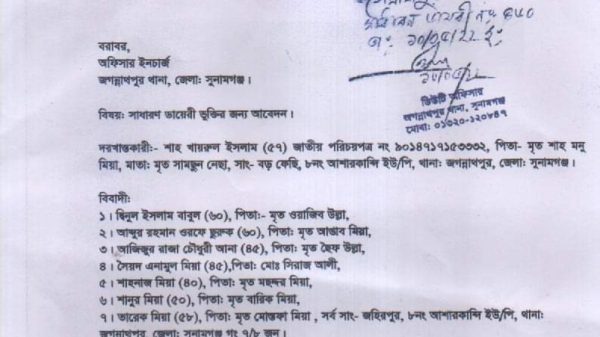 সাধারণ ডায়েরী নং ৪৮০
তাং ১০/০৫/২২ ইং
১০/০৫/২২
ডিউটি অফিসার
জগন্নাথপুর থানা, সুনামগঞ্জ
মোবা: ০১৩২০-১২০৪৭১
বরাবর,
অফিসার ইনচার্জ
জগন্নাথপুর থানা, জেলা: সুনামগঞ্জ।
বিষয়: সাধারণ ডায়েরী ভূক্তির জন্য আবেদন।
দরখাস্তকারী:- শাহ খায়রুল ইসলাম (৫৭) জাতীয় পরিচয়পত্র নং ৯০১৪৭১৭১৫৩৩৩২, পিতা- মৃত শাহ মনু
মিয়া, মাতা: মৃত সামছুন নেহা, সাং- বড় ফেছি, ৮নং আশারকান্দি ইউ/পি, থানা: জগন্নাথপুর, জেলা: সুনামগঞ্জ।
বিবাদী:
১। দ্বিনুল ইসলাম বাবুল (৬০), পিতা:- মৃত ওয়াজিব উল্লা,
২। আব্দুর রহমান ওরফে ছুরুক (৬০), পিতা: মৃত আপ্তাব মিয়া,
৩। আজিজুর রাজা চৌধুরী আনা (৪৫), পিতা: মৃত হৈফ উল্লা,
৪। সৈয়দ এনামুল মিয়া (৪৫),পিতা: মোঃ সিরাজ আলী,
৫। শাহনাজ মিয়া (৪০), পিতা: মৃত মছদ্দর মিয়া,
৬। শানুর মিয়া (৫০), পিতা: মৃত বারিক মিয়া,
৭। তারেক মিয়া (৫৮), পিতা: মৃত মোস্তফা মিয়া , সর্ব সাং- জহিরপুর, ৮নং আশারকান্দি ইউ/পি, থানা:
জগন্নাথপুর, জেলা: সুনামগঞ্জ গং ৭/৮ জন।